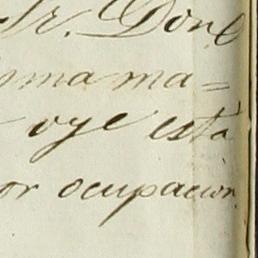 Sr. Don E
isma ma=
oye está
or ocupacion